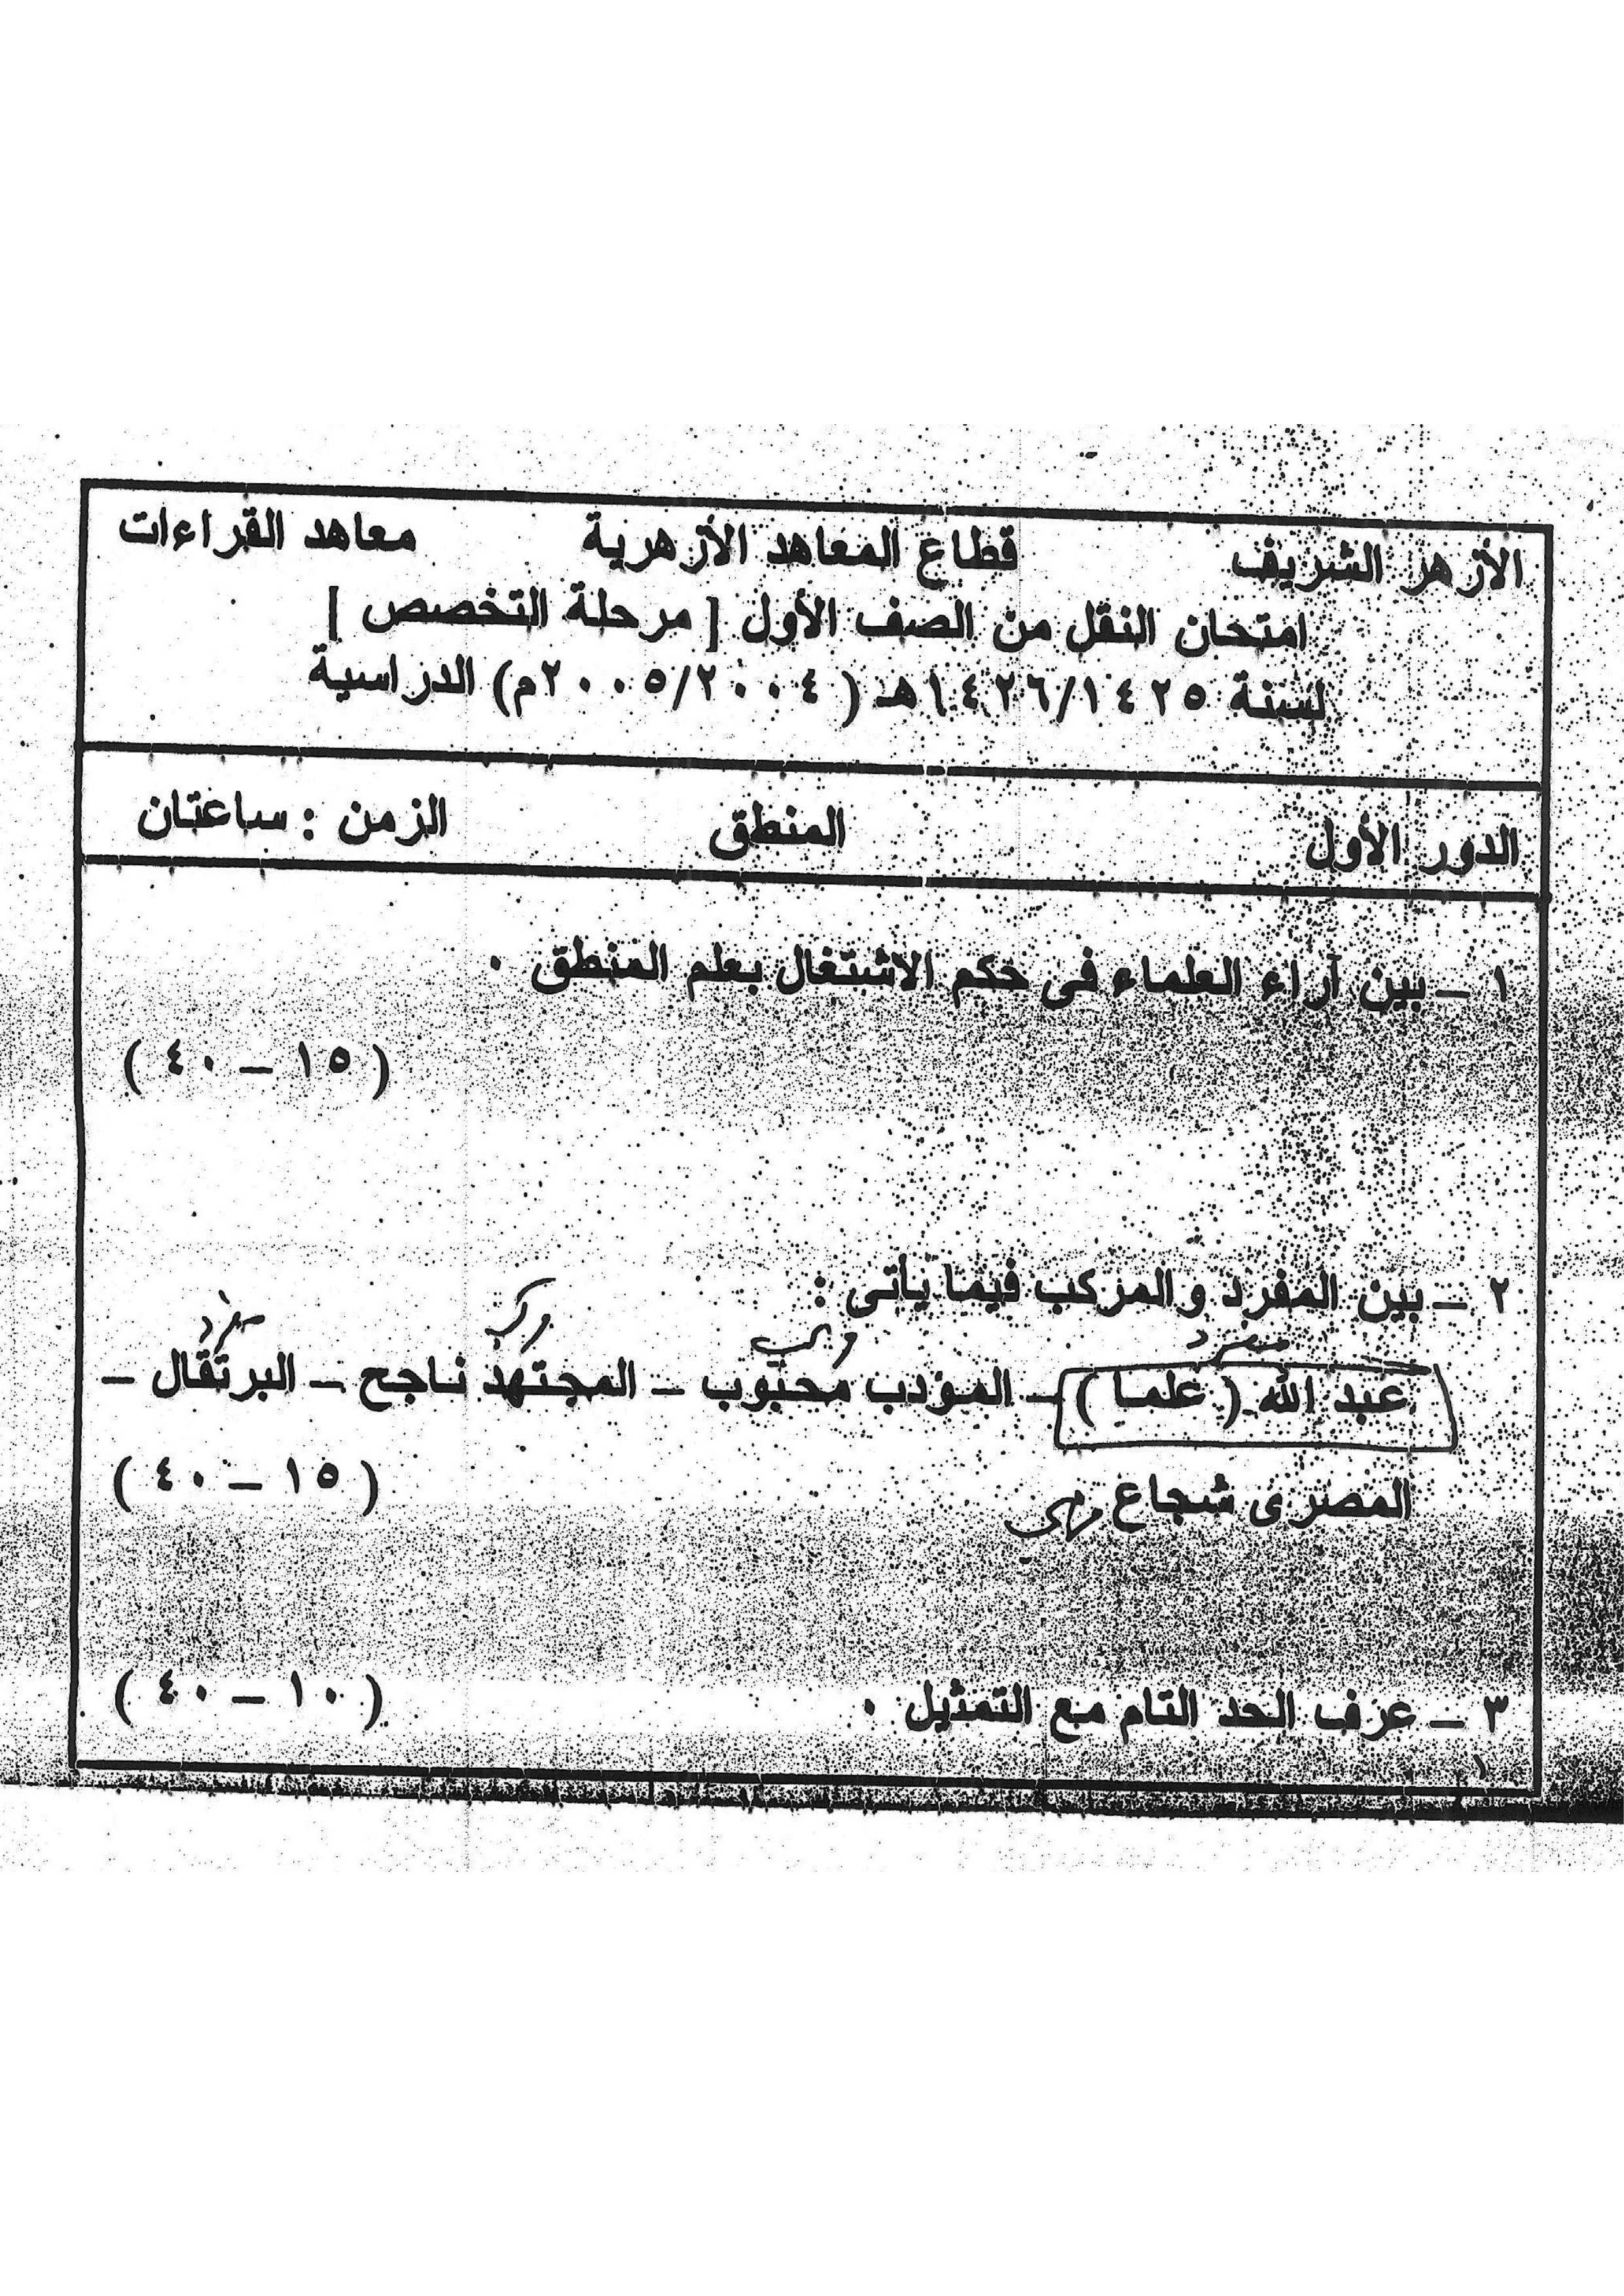 الأزهر الشريف قطاع المعاهد الأزهرية معاهد القراءات
امتحان النقل من الصف الأول [ مرحلة التخصص ]
لسنة ١٤٢٦/١٤٢٥هـ ( ٢٠٠٥/٢٠٠٤م) الدراسية
الدور الأول المنطق الزمن : ساعتان
١ – بين آراء العلماء فى حكم الاشتغال بعلم المنطق .
( ١٥ – ٤٠ )
٢ – بين المفرد والمركب فيما يأتى :
مفرد مركب مركب مفرد
عبد الله ( علما ) – المؤدب محبوب – المجتهد ناجح – البرتقال –
المصرى شجاع مركب
( ١٥ – ٤٠ )
٣ – عرف الحد التام مع التمثيل . ( ١٠ – ٤٠ )